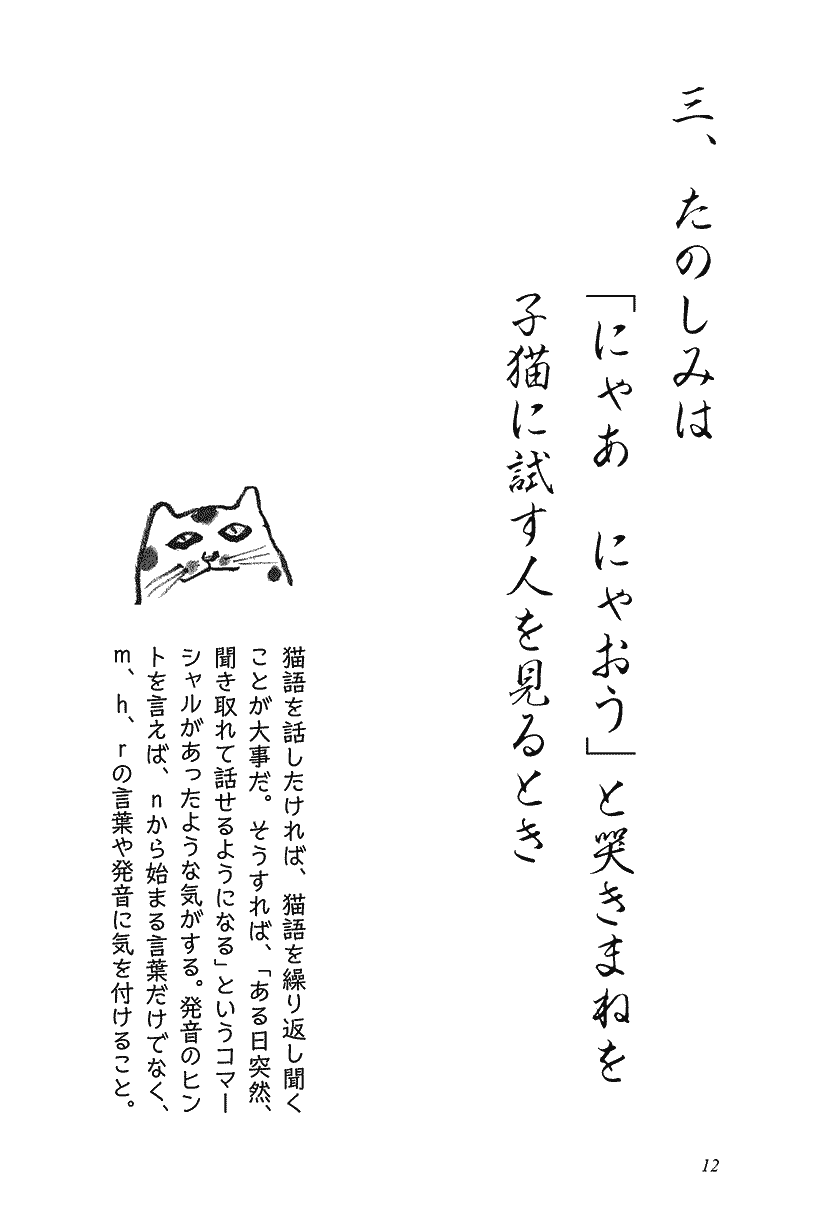 三、 たのしみは
「にゃあ にゃおう」と哭きまねを
子猫に試す人を見るとき
猫語を話したければ、猫語を繰り返し聞く
ことが大事だ。そうすれば、「ある日突然、
聞き取れて話せるようになる」というコマー
シャルがあったような気がする。発音のヒン
トを言えば、nから始まる言葉だけでなく、
m、h、rの言葉や発音に気を付けること。
12